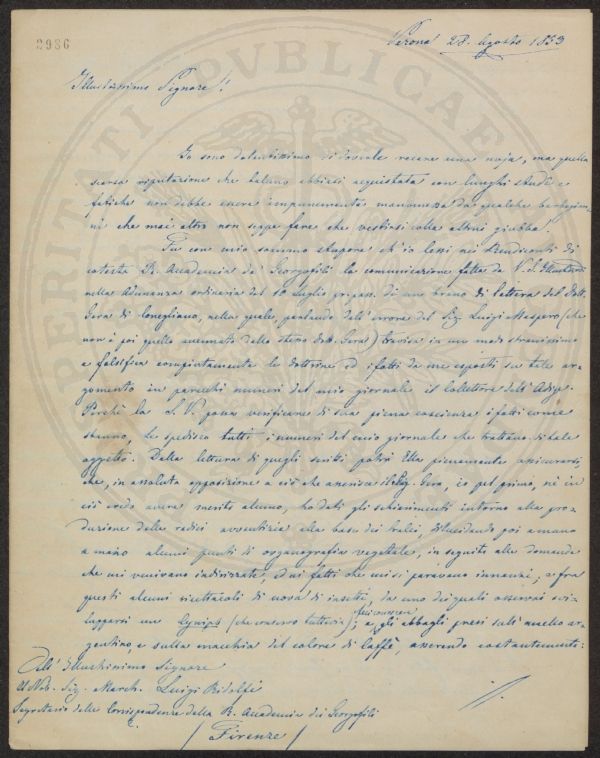 2986
Verona 28. Agosto 1853
Illustrissimo Signore!
Io sono dolentissimo di doverle recare una noja, ma quella
scarsa riputazione che taluno abbiasi acquistata con lunghi studi e
fatiche non debbe essere impunemente manomessa da qualche
che mai altro non seppe fare che vestirsi colla altrui giubba!
Fu con mio sommo stupore ch'io lessi nei Rendiconti di
cotesta R. Accademia dei Georgofili la comunicazione fatta da V. S. Illustriss.
nella Adunanza ordinaria del 10 Luglio di un brano di lettera del Dott.
Gera di Conegliano, nella quale, parlando dell'errore del Sig. Luigi Maspero (che
non è poi quello accennato dallo stesso Dott. Gera) travisa in un modo stranissimo
e falsifica compiutamente le dottrine ed i fatti da me esposti su tale ar-
gomento in parecchi numeri del mio giornale il Collettore dell'Adige.
Perchè la S. V. possa verificare di sua piena coscienza i fatti come
stanno, Le spedisco tutti i numeri del mio giornale che trattano di tale
oggetto. Dalla lettura di quegli scritti potrà Ella pienamente assicurarsi,
che, in assoluta opposizione a ciò che asserisce il Sig. Gera, io pel primo, nè in
ciò credo avere merito alcuno, ho dati gli schiarimenti intorno alla pro-
duzione delle radici avventizie alla base dei tralci, dilucidando poi a mano
a mano alcuni punti di organografia vegetale, in seguito alle domande
che mi venivano indirizzate, ed ai fatti che mi si paravano innanzi; e fra
questi alcuni ricettacoli di uova di insetti, da uno dei quali osservai svi-
lupparsi un Cynips (che conservo tuttavia); e gli abbagli presi sull'anello ar-
gentino, e sulla macchia del colore di caffè, asserendo costantemente:
All'Illustrissimo Signore
Il Nob. Sig. March. Luigi Ridolfi
Segretario delle Corrispondenze della R. Accademia dei Georgofili
/ Firenze /
PERITATI PVBLICAE